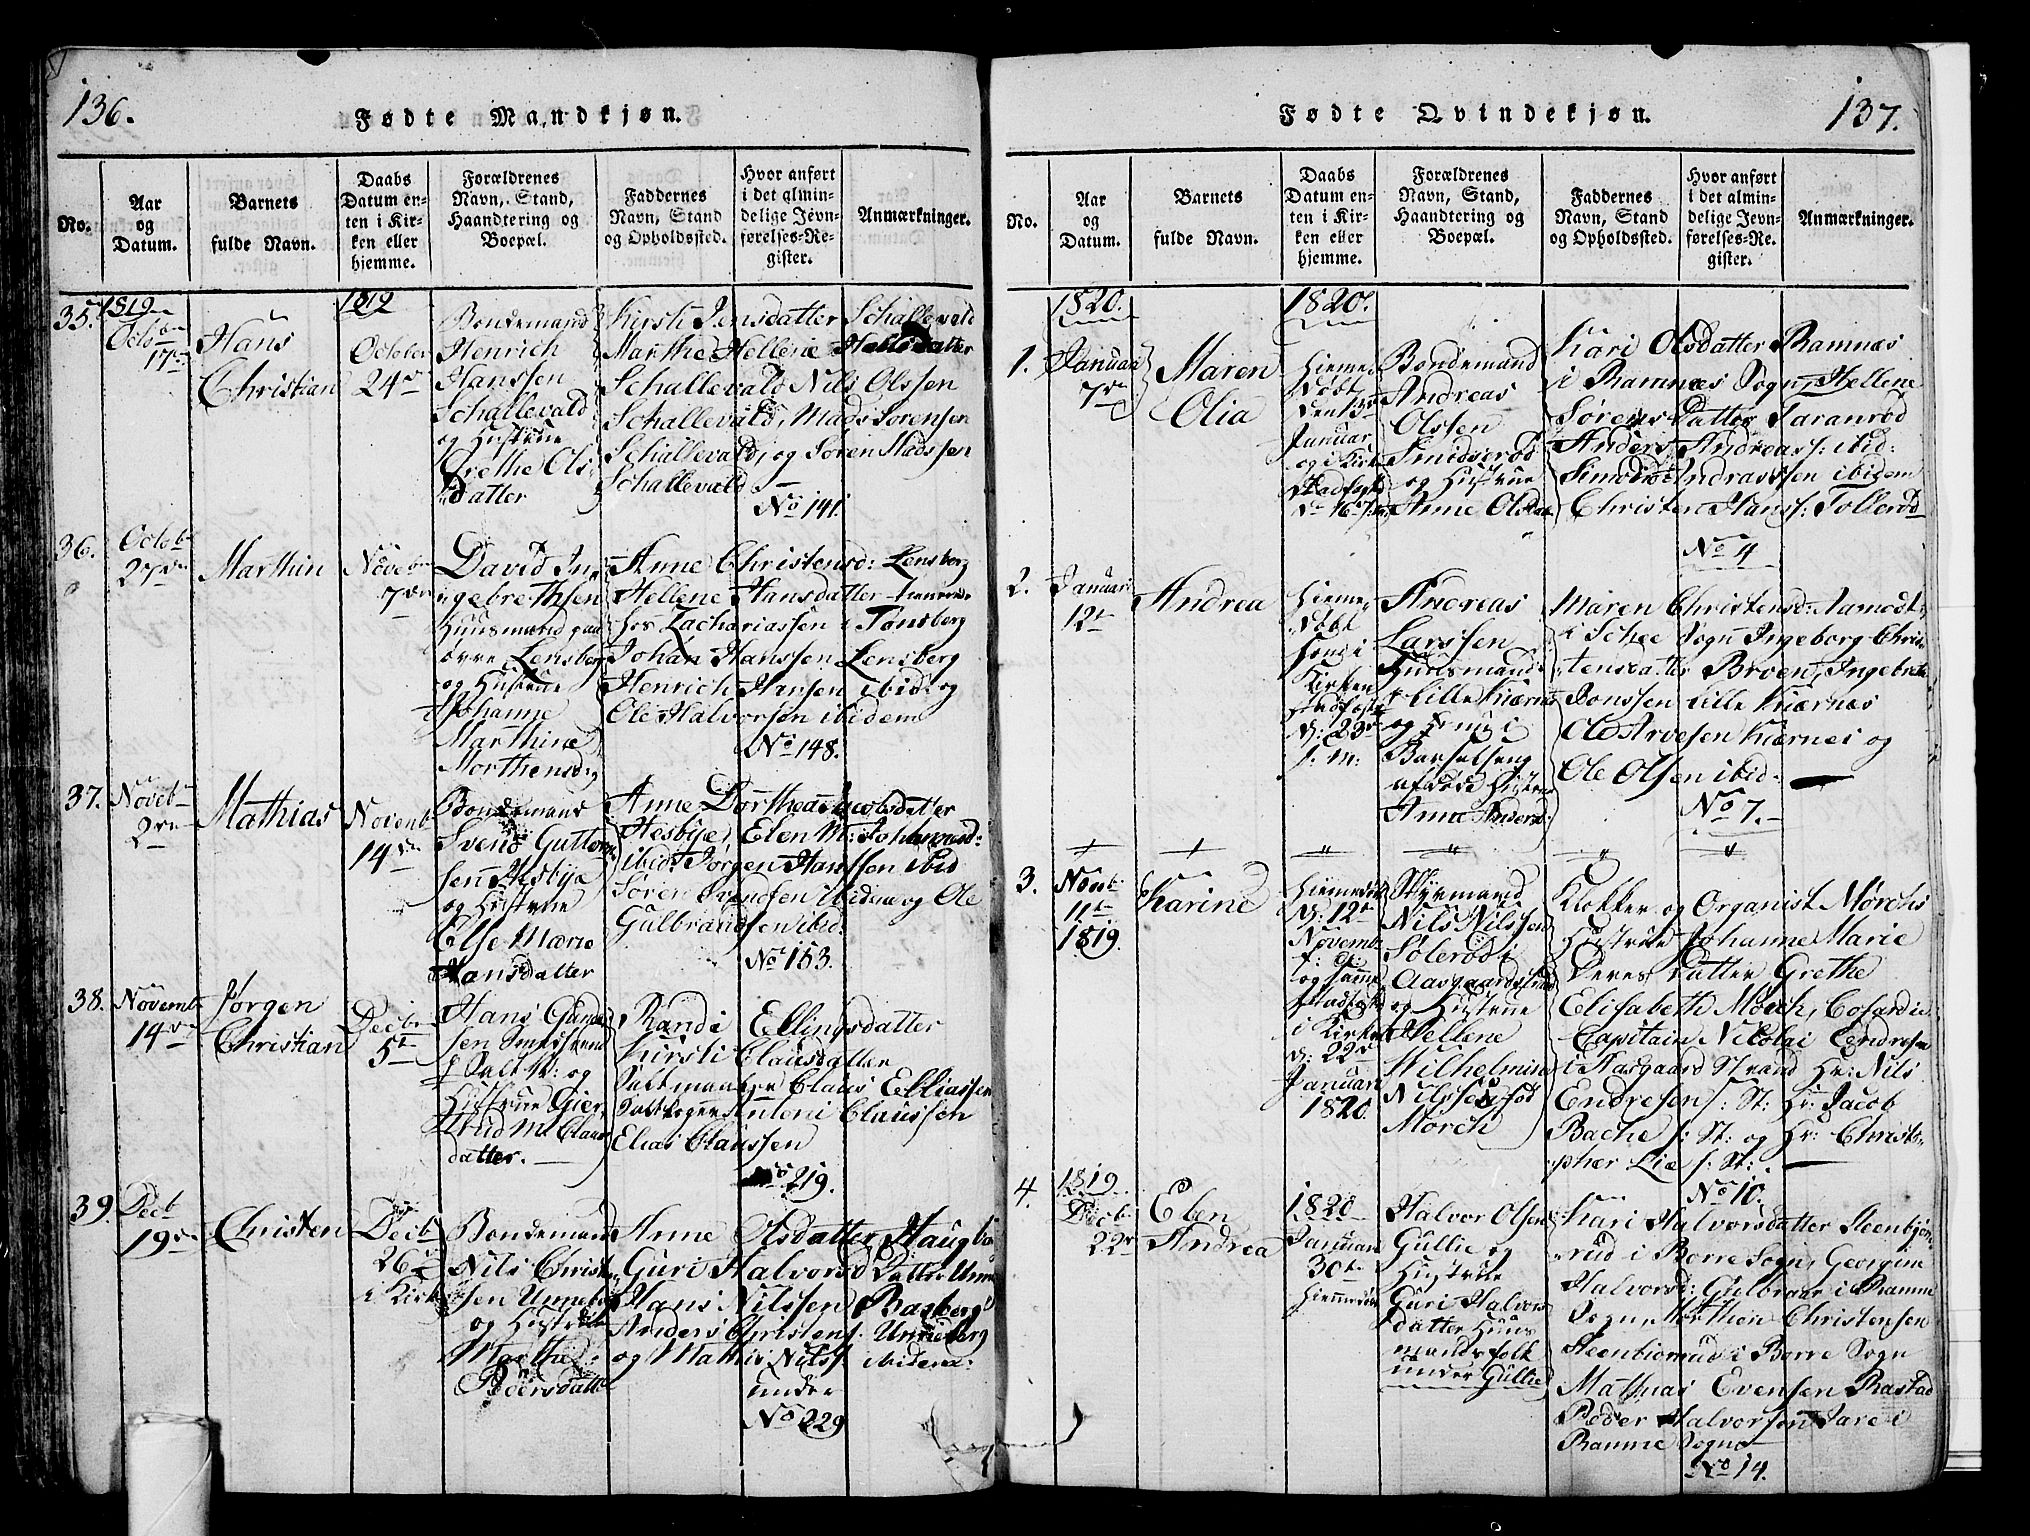 136.
Fødte Mandkjøn.
No.
Aar
og
Datum.
Barnets
fulde Navn.
Daabs
Datum en-
ten i Kir-
ken eller
hjemme.
Forældrenes
Navn, Stand,
Haandtering og
Boepæl.
Faddernes
Navn, Stand
og Opholdssted.
Hvor anført
i det almin-
delige Jevn-
førelses-Re-
gister.
Anmærkninger.
35.
1819
Octob
17de
Hans
Christian
1819
October
24de
Bondemand
Henrich
Hanssen
Schallevald
og Hustrue
Grethe Ols
datter
Kirsti Jensdatter Schallevald
Marthe Hellene
Schallevald Nils Olssen
Schallevald, Mads Sørensen
Schallevald, og Søren Madssen
Schallevald
No 141.
36.
Octob
27de
Marthin
Novebr
7de
David In
gebrethsen
Huusmand paa
øvre Lensberg
og Hustrue
Johanne
Marthine
Morthensd
Anne Christensd: Lensberg
Hellene Hansdatter
hos Zachariassen i Tønsberg
Johan Hanssen Lensberg
Henrich Hansen ibid: og
Ole Halvorsen ibidem
No 148.
37.
Novebr
2den
Mathias
Novemb
14de
Bondemand
Svend Guttorm
sen Hesbye
og Hustrue
Else Marie
Hansdatter
Anne Dorthea Jacobsdatter
Hesbye, Elen M: Johannesd:
ibid: Jørgen Hanssen ibid
Søren Svendsen ibidem og Ole
Gulbrandsen ibid:
No 153.
38.
Novemb
14de
Jørgen
Christian
Decbr
5te
Hans Gunde
sen
Salt V: og
Hustrue Gier
trud M. Claus
datter.
Randi Ellingsdatter
Kirsti Clausdatter
Claus Elliassen
Antoni Claussen
Elias Claussen
No 219.
39.
Decb
19de
Christen
Decb
26de
i Kirk
Bondemand
Nils Christen
sen Unneberg
og Hustrue
Marthe
Peersdatter
Anne Olsdatter Haugberg
Guri Halvorsd Datter Unne
Hans Nilssen Basberg
Anders Christens: Unneberg
og Mathis Nilss: ibidem:
under
No 229
137.
Fødte Qvindekjøn.
No.
Aar
og
Datum.
Barnets
fulde Navn.
Daabs
Datum en-
ten i Kir-
ken eller
hjemme.
Forældrenes
Navn, Stand,
Haandtering og
Boepæl.
Faddernes
Navn, Stand
og Opholdssted.
Hvor anført
i det almin-
delige Jevn-
førelses-Re-
gister.
Anmærkninger.
1.
1820.
Januar
7de
Maren
Olia
1820.
Hieme
døbt
den 13de
Januar
og i Kirk
stadfæst
d: 16
Bondemand
Andreas
Olsten
Smidsrød
og Hustrue
Anne Olsdat
Kari Olsdatter Ramnæs
i Ramnæs Sogn, Hellene
Sørens Datter Taranrød
Anders Andreass: ibid:
Simon Andrassen ibidem
Christen Hans: Tollerød
No 4
2.
Januari
12te
Andrea
Hieme
døbt
i
Kirken
stadfæst
d: 23de
s: m:
Andreas
Larssen
Huusmand
Lille Kiærnes
og
Barselseng
afdøde Hustrue
Anne Anders
Maren Christensd: Aamodt
i Schee Sogn Ingeborg Chris
tensdatter Broen, Ingebret
Jonssen Lille Kiærnæs
Ole Arvesen Kiærnes og
Ole Olsen ibid
No 7.
3.
Novb
11te
1819.
Karine
Hiemedøbt
d: 12te
Novemb
f: A:
og samme
stadfæst
i Kirken
d: 22de
Januari
1820.
Styrmand
Nils Nilssen
Sølerød i
Aasgaardstrand
og Hustrue
Hellene
Wilhelmine
Nilssen fød
Mørch
Klokker og Organist Mørchs
Hustrue Johanne Marie
Deres Datter Grethe
Elisabeth Mørch, Cofardie
Capitain Nicolai Endresen
i Aasgaard Strand Hr: Nils
Endresen s: St: Hr: Jacob
Bache s: St: og Hr: Christo
pher Lie s: St:
No 10.
4.
1819
Decb
22de
Elen
Andrea
1820
Januar
30te
Hiemmedøbt
Halvor Olsen
Gullie og
Hustrue
Guri Halvors
datter Huus
mands folk
under Gullie
Kari Halvorsdatter Steenbjøn
rud i Borre Sogn, Georgine
Halvorsd: Gulbraar i Ramne
Sogn Morthen Christensen
Steenbiønrud i Borre Sogn
Mathias Evensen Rastad
Peder Halvorsen Jare i
Ramne Sogn
No 14.